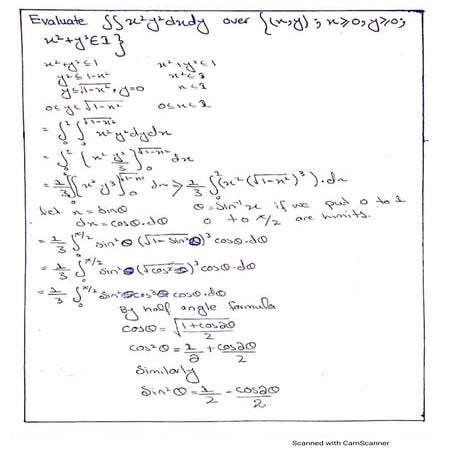 Evaluate ∬x²y²dxdy over {(x,y) ; x≥0, y≥0;
x²+y²≤1}
x²+y²≤1 x²+y²≤1
y²≤1-x² x²≤1
y≤√1-x², y=0 x≤1
0≤y≤√1-x² 0≤x≤1
= ∫₀¹ ∫₀^√1-x² x²y²dydx
= ∫₀¹ [x² y³/3]₀^√1-x² dx
= 1/3 ∫[x² y³]₀^√1-x² dx ⇒ 1/3 ∫₀¹ (x²(√1-x²)³).dx
Let x = sinθ θ = sin⁻¹x if we put 0 to 1
dx = cosθ.dθ 0 to π/2 are limits.
= 1/3 ∫₀^π/2 sin²θ (√1-sin²θ)³ cosθ.dθ
= 1/3 ∫₀^π/2 sin²θ (√cos²θ)³ cosθ.dθ
= 1/3 ∫₀^π/2 sin²θcos³θ cosθ.dθ
By half angle formula
cosθ = √1+cos2θ/2
cos²θ = 1/2 + cos2θ/2
Similarly
Sin²θ = 1/2 - cos2θ/2
Scanned with CamScanner